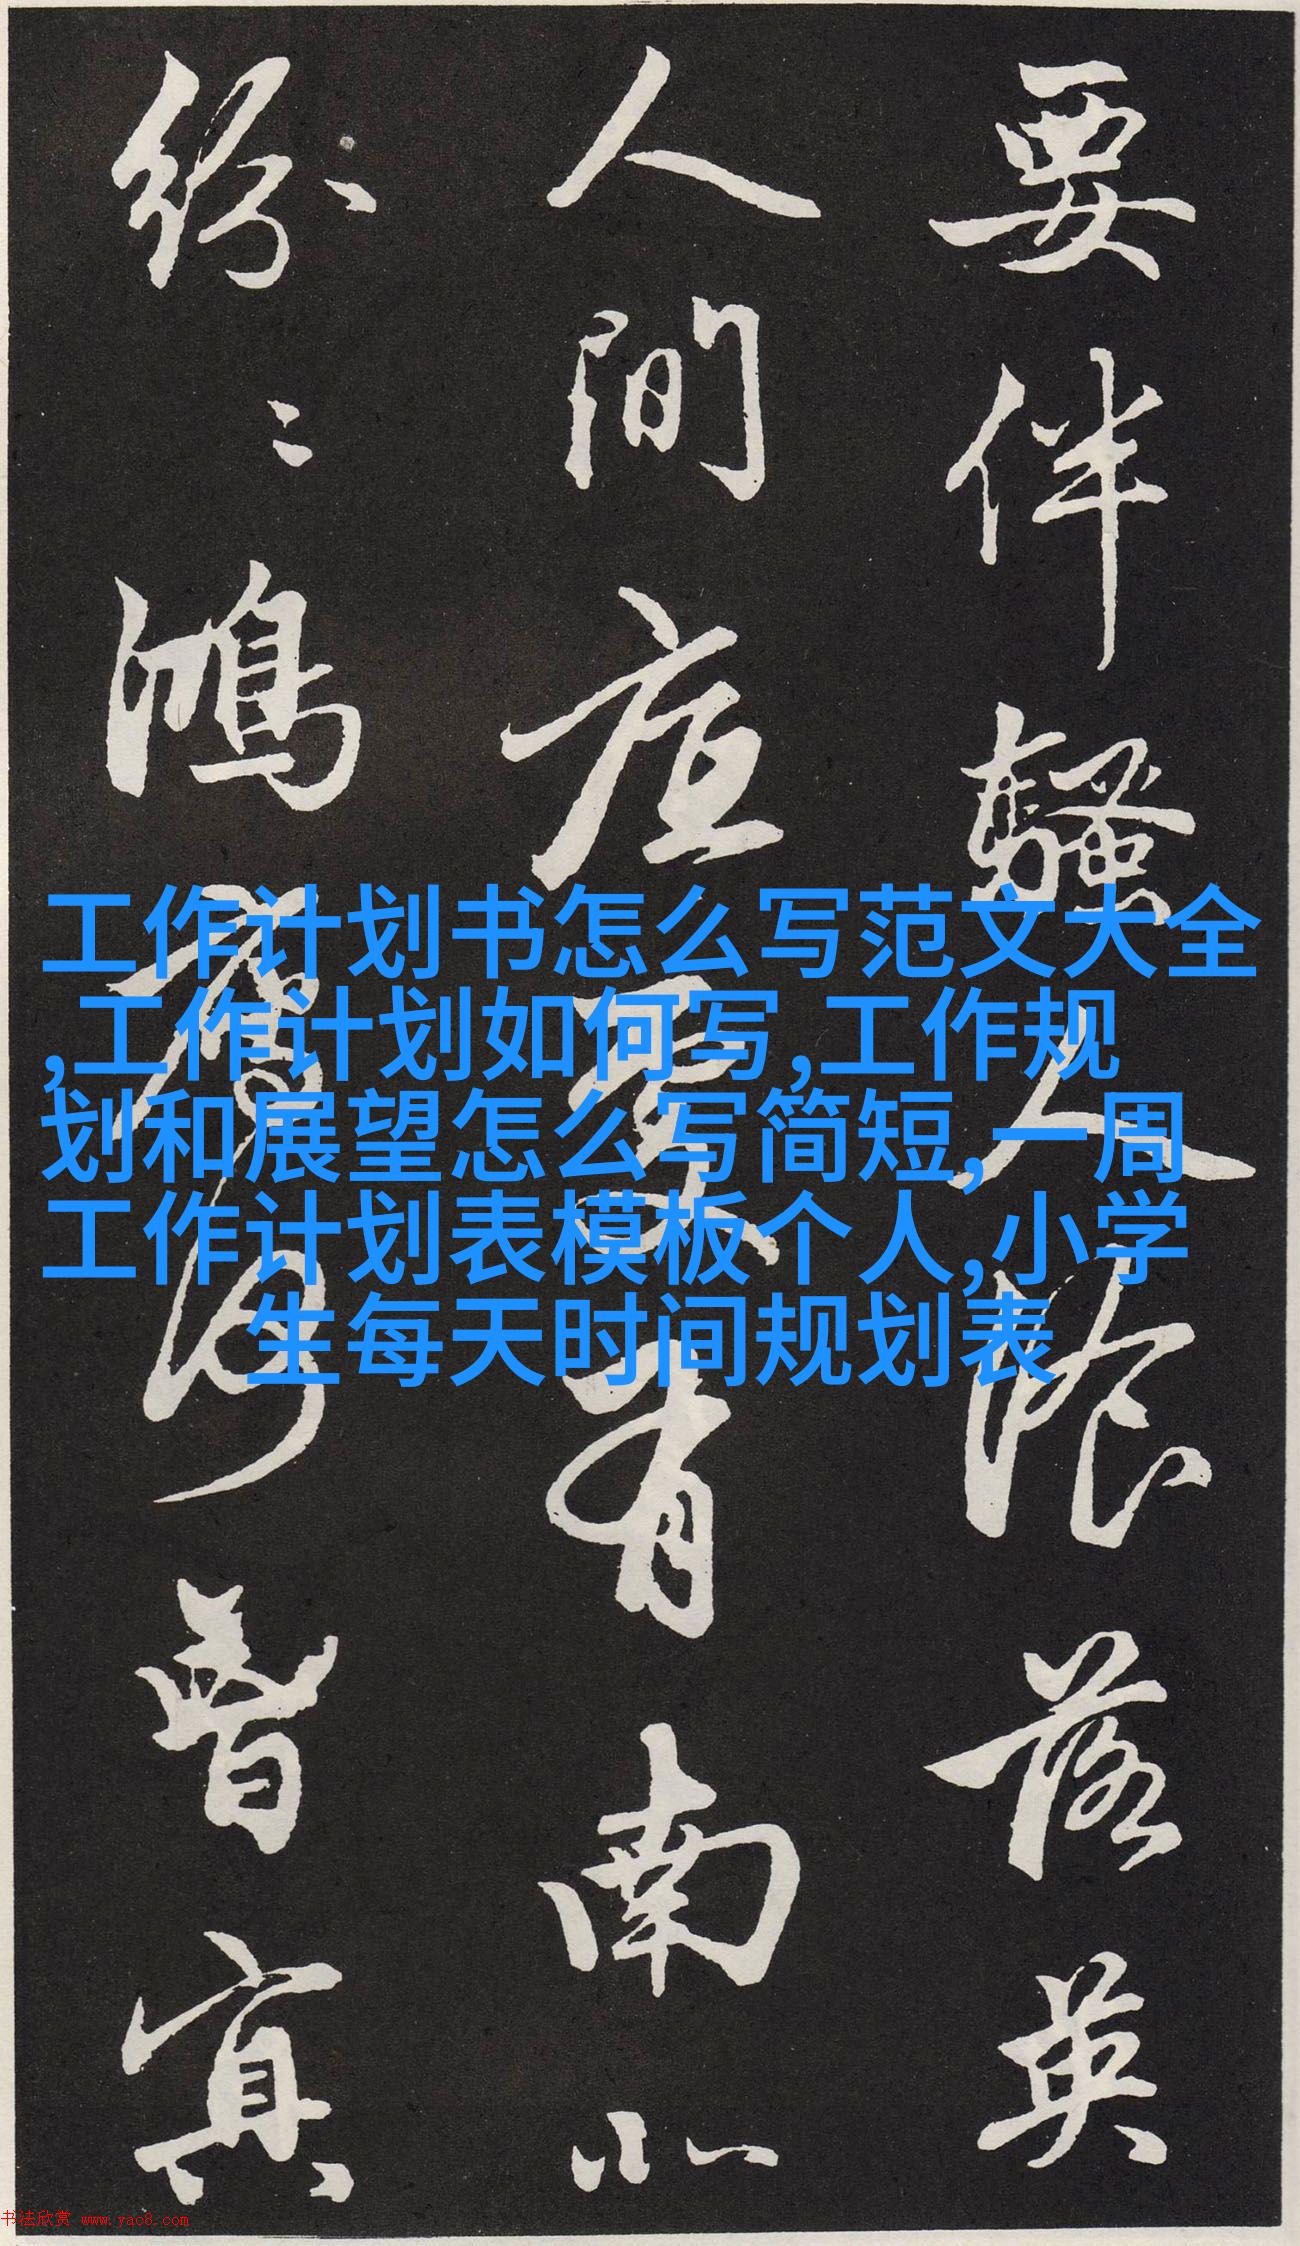 要伴騷人飡落英
人間底處有南北
紛〻鴻鴈何曾冥
工作计划书怎么写范文大全
,工作计划如何写,工作规
划和展望怎么写简短,一周
工作计划表模板个人,小学
生每天时间规划表
书法欣赏 www.yac8.com